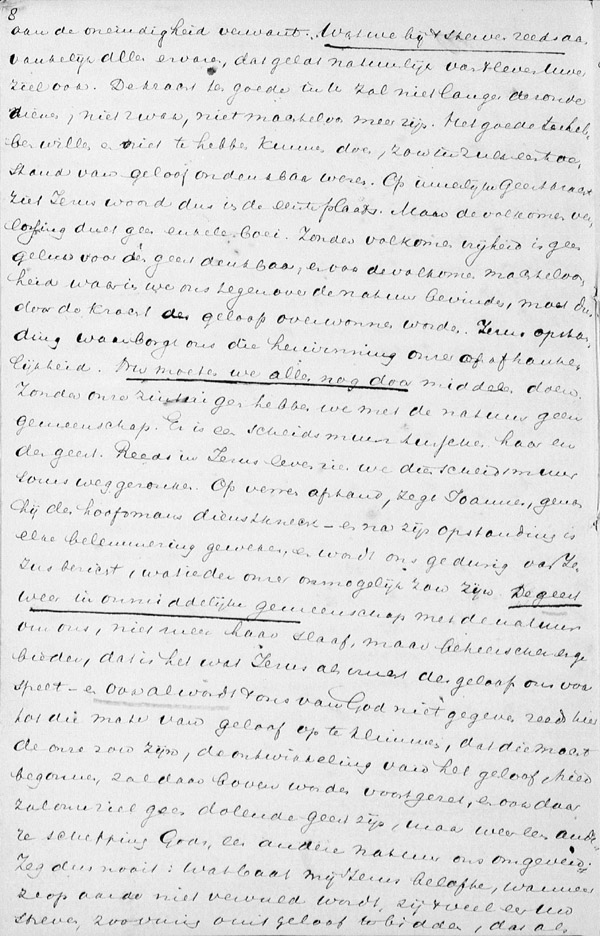 8
aan de oneindigheid verwant. Wat we bij 't sterven reeds aan
vankelijk allen ervaren, dat geldt natuurlijk van 't leven
ziel ook. De kracht ten goede in U zal niet langer de zonde
dienen, niet zwak, niet machteloos meer zijn. Het goede te
willen en niet te hebben kunnen doen, zou in zulk een toe
stand van geloof ondenkbaar wezen. Op innerlijke Geestkracht
ziet Jezus woord dus in de eerste plaats. Maar de volkomen ver
lossing duldt geen enkele boei. Zonder volkomen vrijheid is geen
geluk voor den geest denkbaar, en van de volkomen machteloos
heid waarin we ons tegenover de natuur bevinden, moet dus
door de kracht des geloofs overwonnen worden. Jezus opstan
ding waarborgt ons die herwinning onzer onafhanke
lijkheid. Nu moeten we alles nog door middelen doen.
Zonder onze zintuigen hebben we met de natuur geen
gemeenschap. Er is een scheidsmuur tusschen haar en
den geest. Reeds in Jezus leven zien we dien scheidsmuur
soms weggezonken. Op verren afstand, zegt Joannes, genas
hij des hoofdmans dienstknecht – en na zijn opstanding is
elke belemmering geweken, en wordt ons gedurig van Je
zus bericht, wat ieder onzer onmogelijk zou zijn. De geest
weer in onmiddelijke gemeenschap met de natuur
om ons, niet meer haar slaaf, maar beheerscher en ge
bieder, dat is het wat Jezus als vrucht des geloofs ons voor
spelt – en ook al wordt 't ons van God niet gegeven reeds hier
tot die mate van geloof op te klimmen, dat die macht
de onze zou zijn, de ontwikkeling van het geloof, hier
begonnen, zal daar boven worden voortgezet, en ook daar
zal onze ziel geen dolende geest zijn, maar weer een ande
re schepping Gods, een andere natuur ons omgeven.
Zeg dus nooit: wat baat mij Jezus belofte, wanneer
ze op aarde niet vervuld wordt, zij 't veel eer Uw
streven, zoo vurig om 't geloof te bidden, dat al